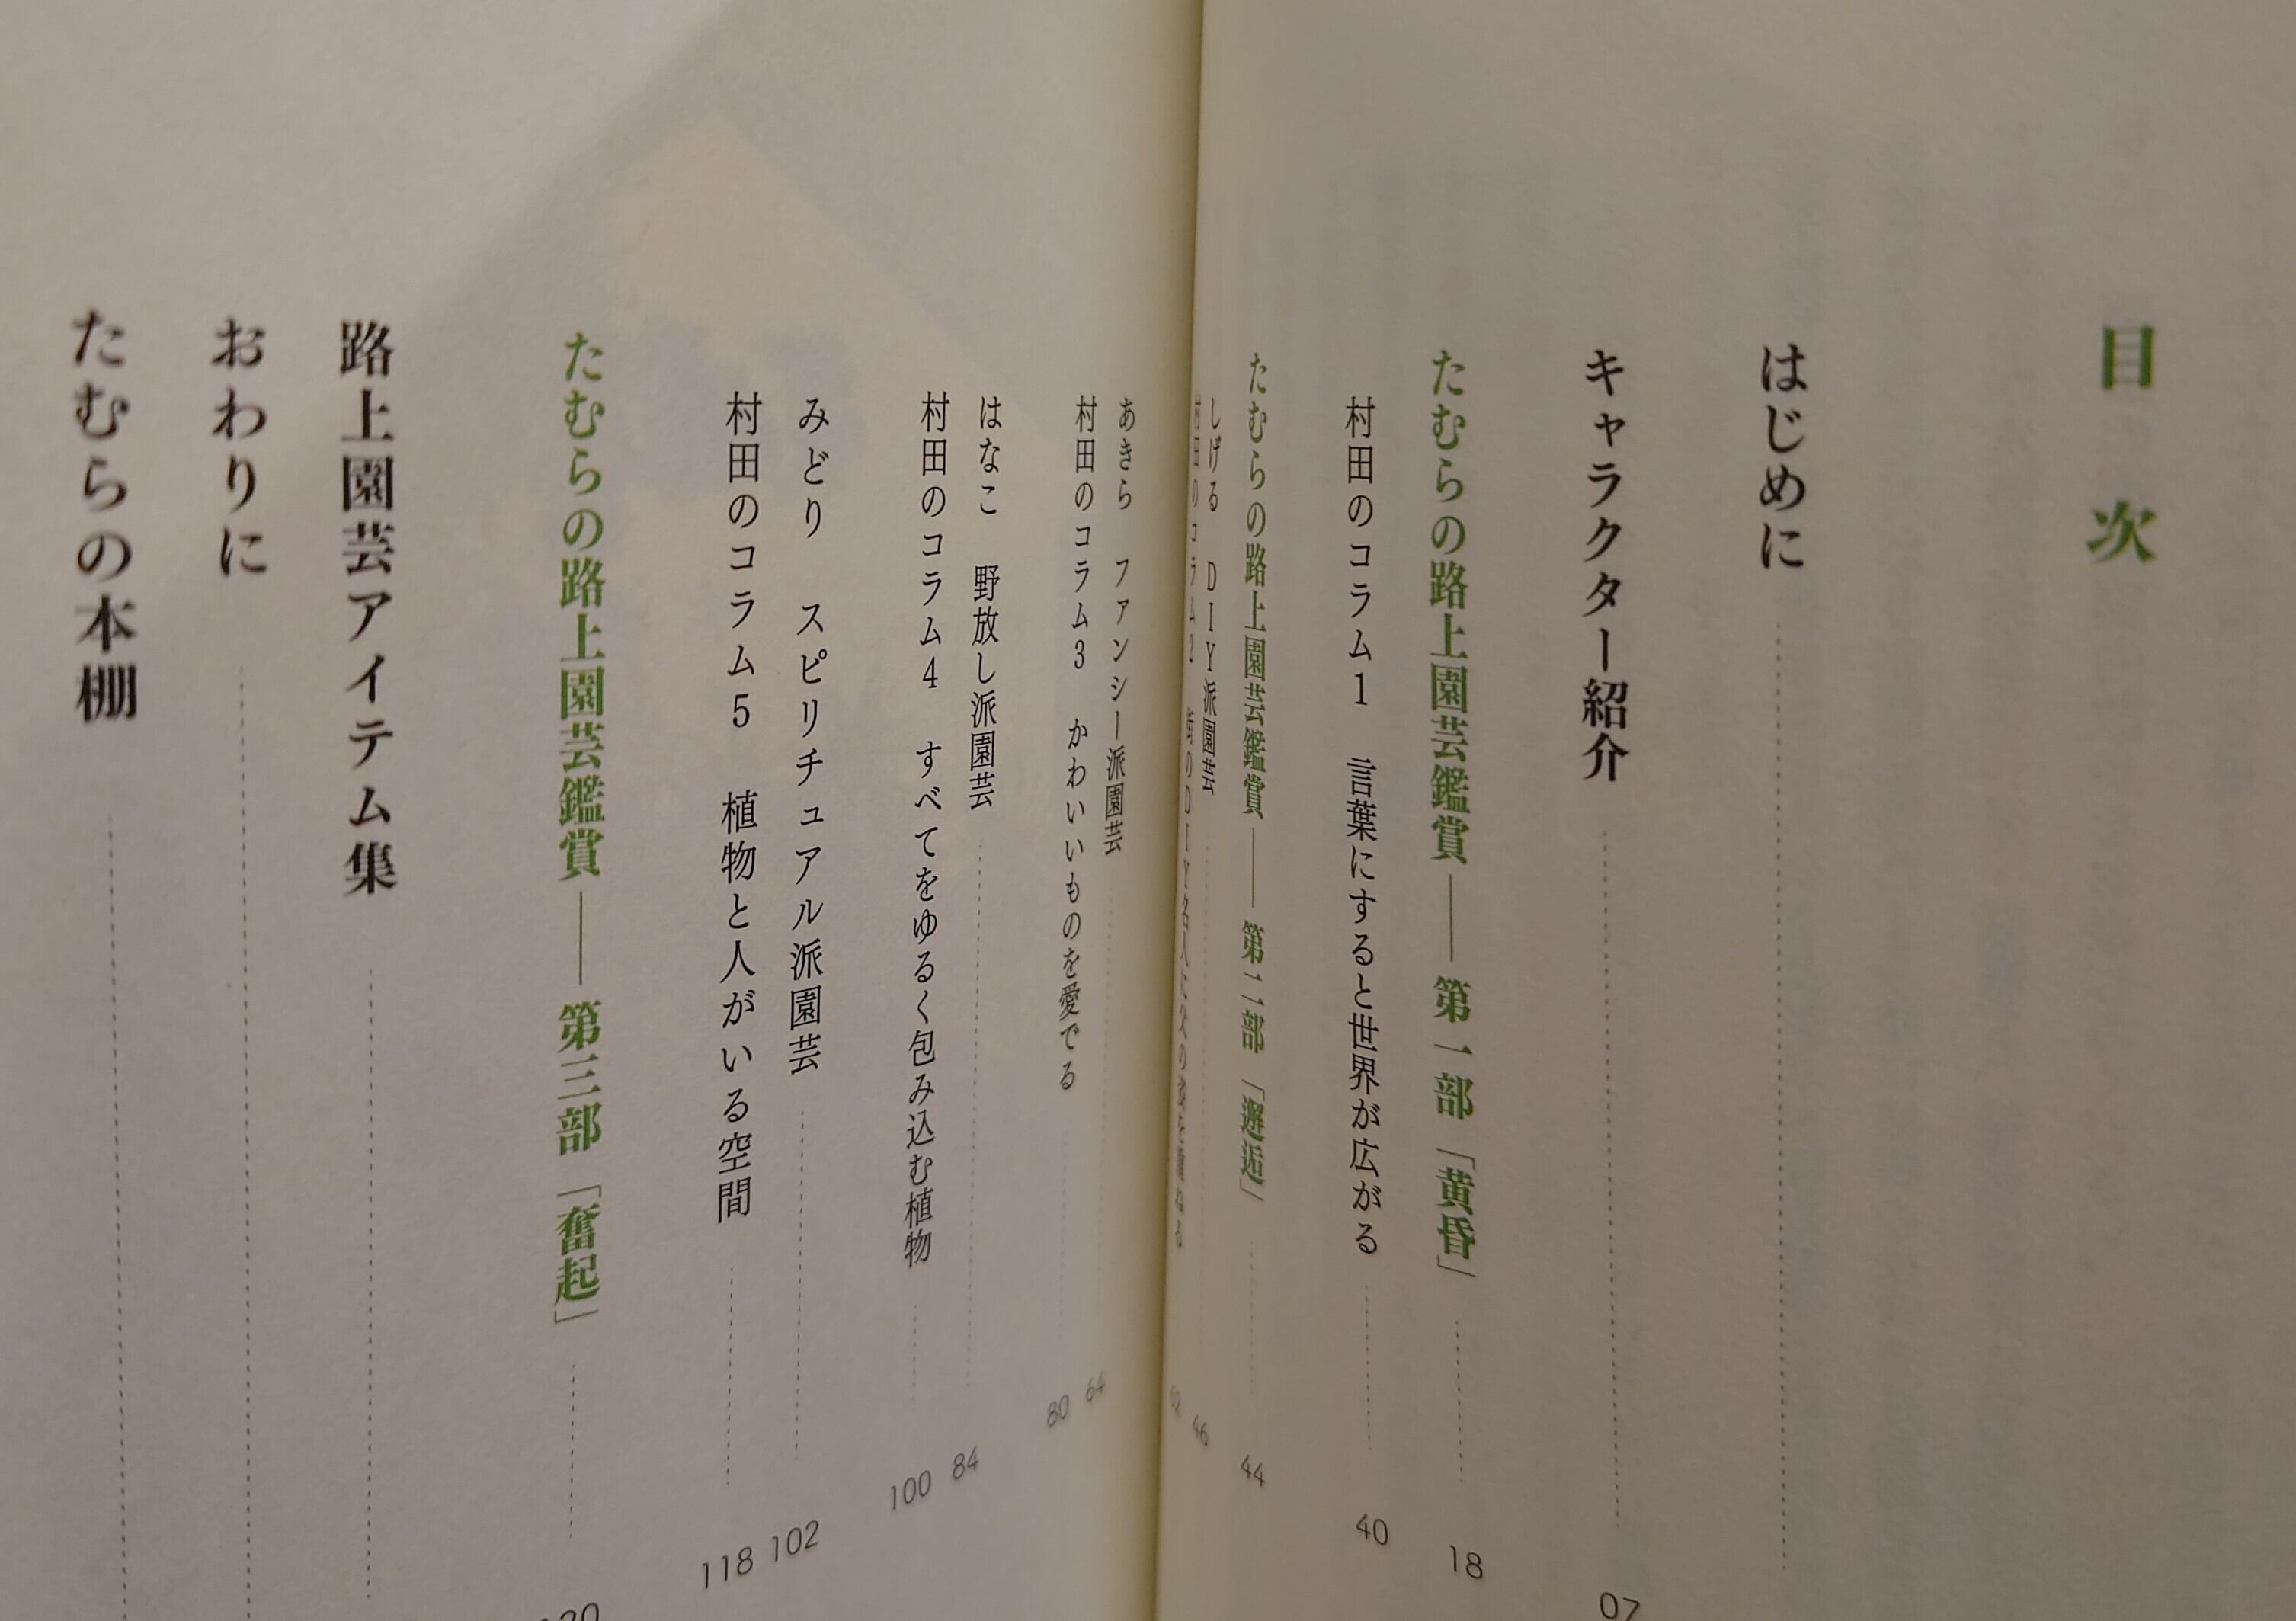 目次
はじめに
キャラクター紹介 07
たむらの路上園芸鑑賞――第一部「黄昏」 18
村田のコラム1 言葉にすると世界が広がる 40
たむらの路上園芸鑑賞――第二部「邂逅」 44
しげる DIY派園芸 46
村田のコラム2 街のDIY名人に父の姿を重ねる 62
あきら ファンシー派園芸 64
村田のコラム3 かわいいものを愛でる 80
はなこ 野放し派園芸 84
村田のコラム4 すべてをゆるく包み込む植物 100
みどり スピリチュアル派園芸 102
村田のコラム5 植物と人がいる空間 118
たむらの路上園芸鑑賞――第三部「奮起」
路上園芸アイテム集
おわりに
たむらの本棚